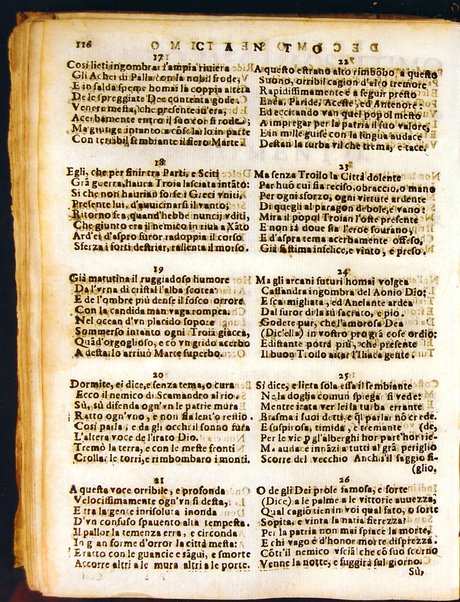 116
17
Così lieti ingombrar l'ampia riviera
Gli Achei di Palla con la nobil frode,
E in salda speme homai la coppia altera
De le spreggiate Dee contenta gode.
Venere mesta, che presente v'era,
Acerbamente entro il suo cor si rode;
Ma giunge intanto a
Con terribil sembiante il fiero Marte.
18
Egli, che per finir tra Parti, e Sciti
Grā guerra, haura Troia lasciata intāto:
Sì che non hauriā suoi Greci vniti.
Presente lui, d'auuicinarsi il vanto;
Ritorno fea, quand'hebbe i nunci vditi,
Che giunto era il nemico in riua a Xāto
Ard'ei d'aspro furor radoppia il corso
Sferza i forti destrier, rallenta il morso.
19
Già matutina il ruggiadoso humore
Da l'vrna di cristal l'alba scotea:
E de l'ombre più dense il fosco orrore
Con la candida man vaga rompea.
Nel ocean d'vn placido sopore
Sommerso intanto ogni Troia giacea,
Quād'orgoglioso, e cō vn grido acerbo
A destarlo arriuò Marte superbo.
20
Dormite, ei dice, e senza tema, o cura
Ecco il nemico di Scamandro al rio.
Sù, sù difenda ogn'vn le patrie mura
Ratto ogn'vno, e non sia lent'o restio.
Così parla; e da gli occhi il sonno fura
L'altera voce de l'irato Dio.
Tremò la terra, e con le meste fronti
Crollar le torri, e rimbombaro i monti.
21
A questa voce orribile, e profonda
Velocissimamente ogn'vn si desta;
E tra la gente inrisoluta inonda
D'vn confuso spauento alta tempesta.
Il pallor la temenza erra, e circonda
In gran forme d'orror la città mesta:
E ratto con le guancie e sāgui, e smorte
Accorre altri a le mura altri a le porte.
22
A questo estrano alto rimbōbo, a questo
Suono, orribil cagion d'alto tremore
Rapidissimamente a seguir presto
Enea, Paride, Aceste, ed Antenore;
Ed eccitando van quel popol mesto
A impregar per la patria il suo valore,
E in mille guise con la lingua audace
Destan la turba vil che trema, e tace.
23
Ma senza Troilo la Città dolente
Par huō cui sia reciso, o braccio, o mano
Per ogni sforzo, ogni virtute ardente
Di quegli al paragon debole, e vano:
Mira il popol Troian l'oste presente
E non sà doue sia l'eroe sourano,
E d'aspra tema acerbamente offeso,
Già si stima infelice, e vinto, e preso.
24
Ma gli arcani futuri homai volgea
Cassandra ingombra del Aonio Dio;
E scamigliata, ed Anelante ardea
Dal furor di la sù sacrato, e pio.
Godete pur, che l'amorosa Dea
(Dic'ella) in vostro prò già cose ordio;
Editiante potrà più, che presente
Il buon Troilo aitar l'Iliaca gente.
25
Si dice, e lieta sola essa il sembiante
Ne la doglia comun spiega si vede;
Mentre irata ver lei la turba errante
Biasma i suoi detti, e'l parlar nō crede.
E suspirosa, timida, e tremante (de,
Per le vie p gl'alberghi hor part'hor rie-
Ma audace innāzi a tutti al grā periglio
Scorre del vecchio Anchi il saggio fi-
(glio,
26
O de gli Dei prole famosa, e forte
(Dice) a le palme a le vittorie auuezza,
Qual cagiō tien in voi qual fato, o sorte
Sopita, e vinta la natia fierezza?
Per la patria non mai spiace la morte,
E chi vago è d'honor morte disprezza.
Cōtr'il nemico vscià, chè cō suo scorno
Venne la notte, e fuggirà sul giorno.
Sù,